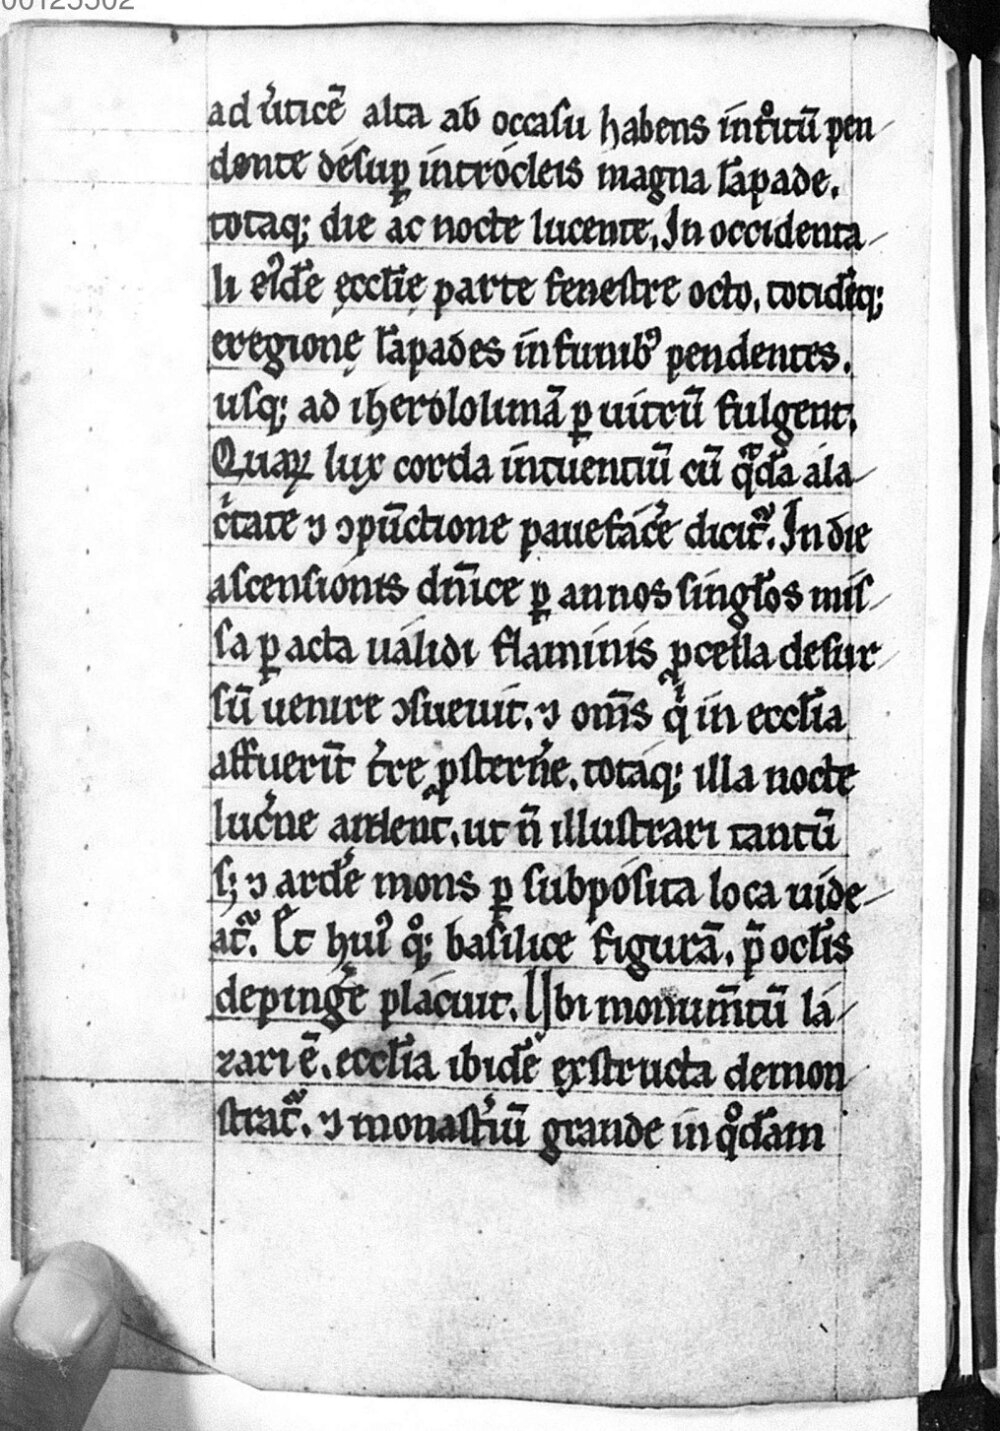 00125502
ad u͛ticē alta ab occasu habens int͛oitū pen
dente desuꝑ introcleis magna lāpade.
totaq; die ac nocte lucente. In occidenta
li ei᷒dē ęccl̄ię parte fenestre octo. totidēq;
eregionę lāpades in funib᷒ pendentes.
usq; ad iherosolimā ꝑ uitrū fulgent.
Quaꝝ lux corda intuentiū cū qͣdā ala
c͛tate ⁊ ↄpūctione pauefac͛e dicit᷑. In die
ascensionis dn̄ice ꝑ annos singl̄os mis
sa ꝑacta ualidi flaminis ꝓcella desur
sū uenire ↄsueuit. ⁊ om̄s qͥ in eccl̄ia
affuerīt t͛re ꝓstern͛e. totaq; illa nocte
luc͛ne ardent. ut n̄ illustrari tantū
s; ⁊ ard͛e mons ꝑ subposita loca uide
at᷑. Et hui᷒ qͦ; basilice figurā. p̄ ocl̄is
depinge͛ placuit. Ubi monum̄tū la
zari ē. eccl̄ia ibidē exstructa demon
strat᷑. ⁊ monast͛iū grande in qͦdam